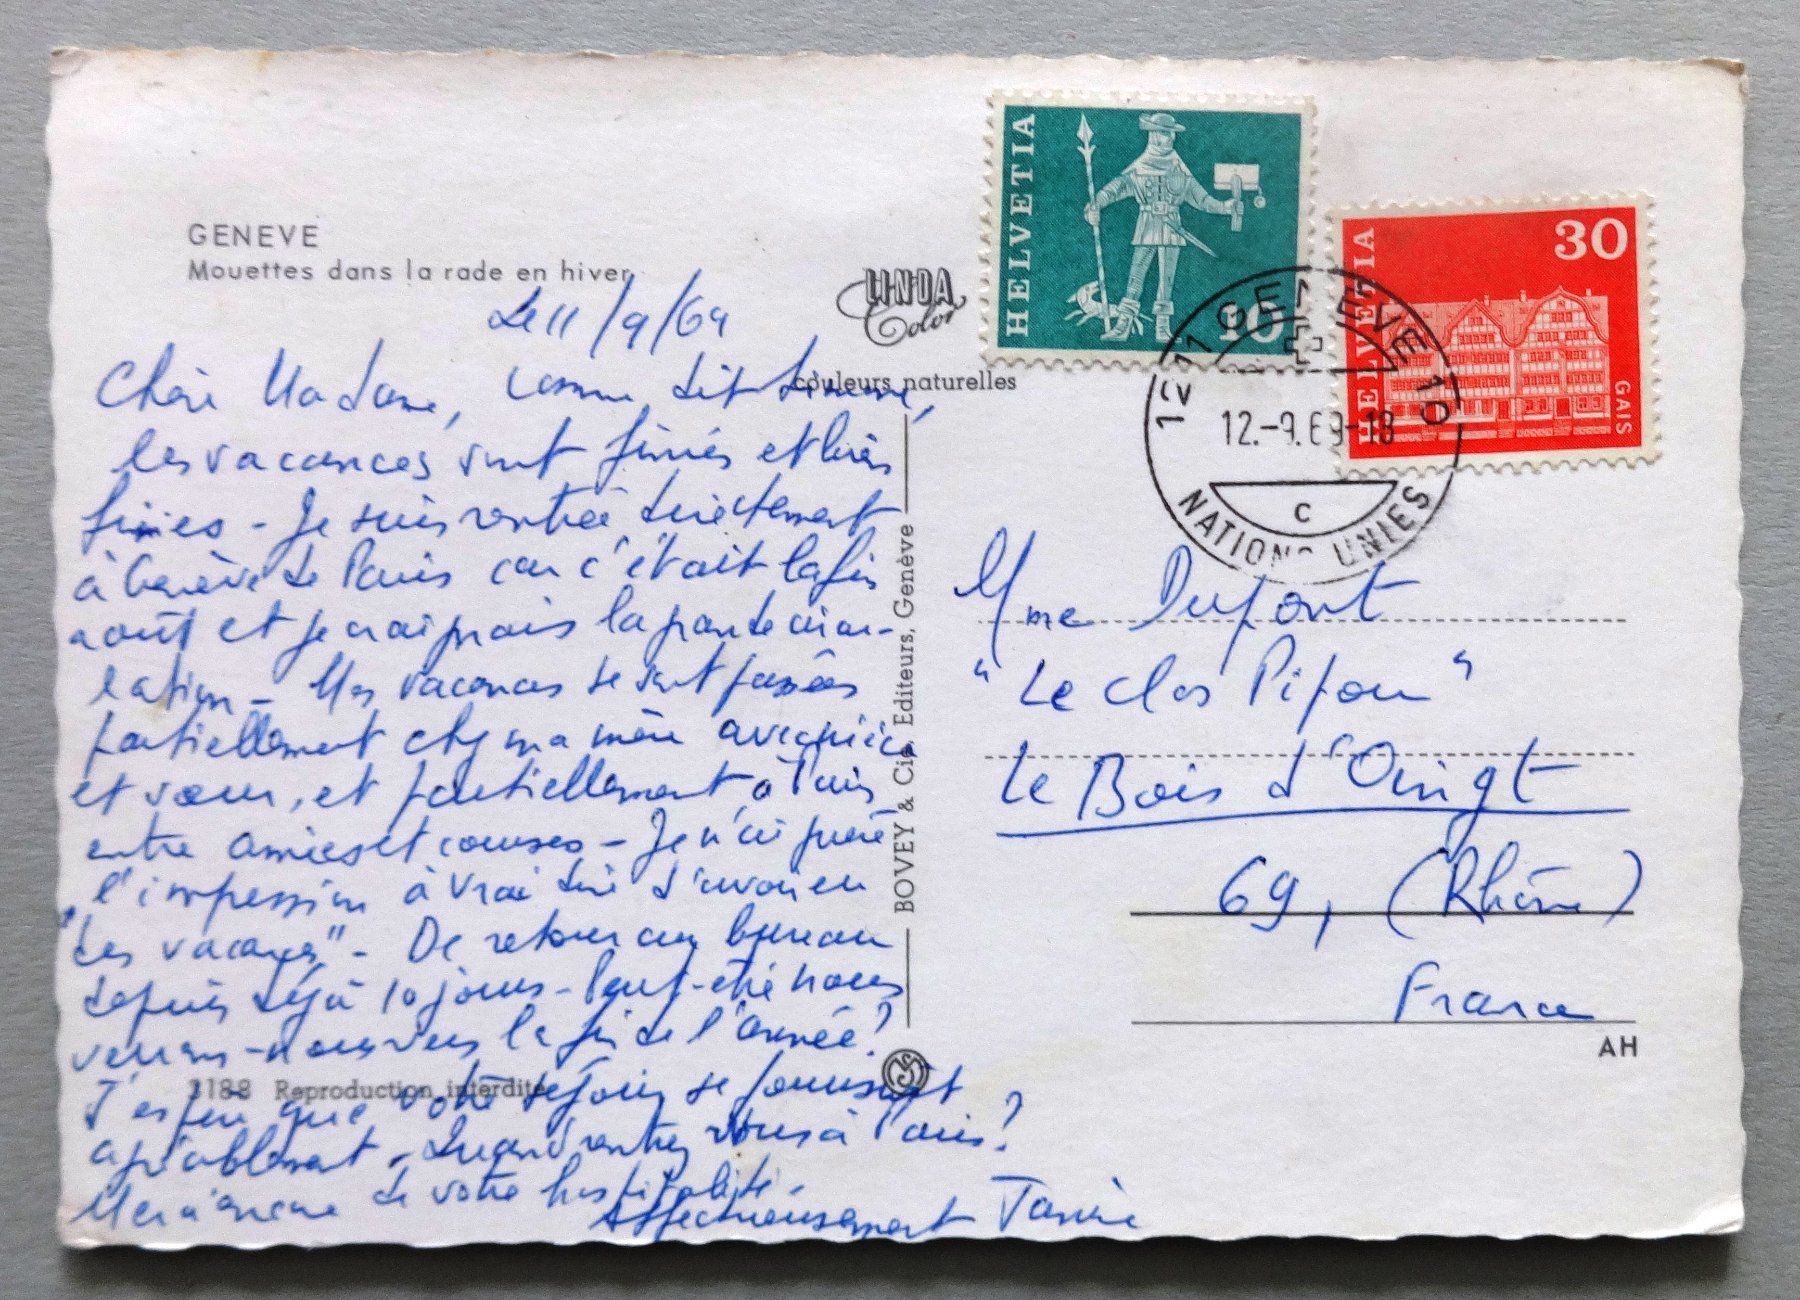 GENEVE
Mouettes dans la rade en hiver
LINDA
Color
couleurs naturelles
Le 11/9/69
Chère Madame, comme dit
les vacances sont finies et bien
finies - Je suis rentrée directement
à Genève de Paris car c'était la fin
août et je craignais la grande circu-
lation - Mes vacances se sont passées
partiellement chez ma mère avec
et sœur, et partiellement à Paris,
entre amies et courses - Je n'ai guère
l'impression à vrai dire d'avoir eu
"des vacances" - De retour au bureau
depuis déjà 10 jours - Peut-être nous
verrons-nous vers la fin de l'année?
J'espère que votre séjour se poursuit
agréablement - Quand rentrez vous à Paris?
Merci encore de votre hospitalité.
Affectueusement
3188 Reproduction interdite
BOVEY & Cie, Editeurs, Genève
HELVETIA
10
HELVETIA
30
GAIS
1211 GENEVE 10
12.-9.69-18
C
NATIONS UNIES
Mme Dufont
"Le Clos Pifou"
Le Bois d'Oingt
69, (Rhône)
France
AH